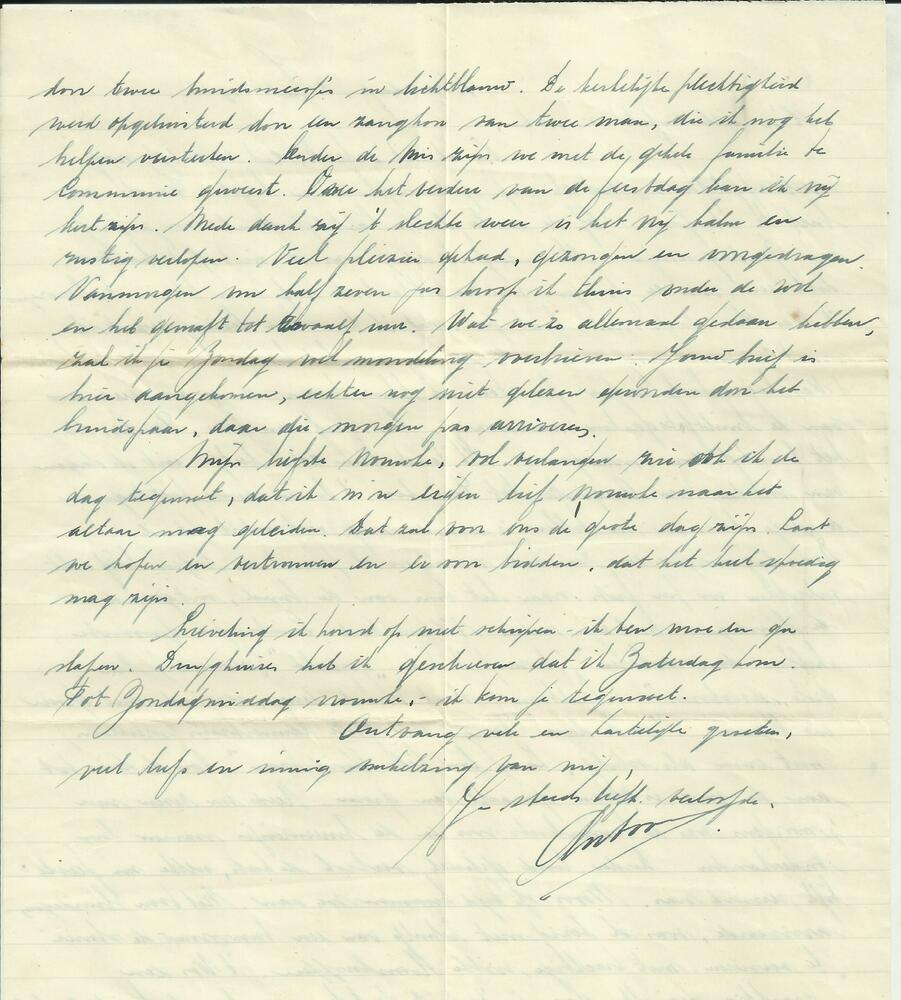 door twee bruidsmeisjes in lichtblauw. De kerkelijke plechtigheid
werd opgeluisterd door een zangkoor van twee man, die ik nog heb
helpen versterken. Onder de Mis zijn we met de gehele familie te
Communie geweest. Over het verdere van de feestdag kan ik vrij
kort zijn. Mede dank zij 't slechte weer is het vrij kalm en
rustig verlopen. Veel plezier gehad, gezongen en voorgedragen.
Vanmorgen om half zeven pas kroop ik thuis onder de wol
en heb gemaft tot twaalf uur. Wat we zo allemaal gedaan hebben,
zal ik je Zondag wel mondeling overbrieven. Jouw brief is
hier aangekomen, echter nog niet gelezen geworden door het
bruidspaar, daar die morgen pas arriveren.
Mijn liefste vrouwke, vol verlangen zie ook ik de
dag tegemoet, dat ik m'n eigen lief vrouwke naar het
altaar mag geleiden. Dat zal voor ons dé grote dag zijn. Laat
we hopen en vertrouwen en er voor bidden, dat het heel spoedig
mag zijn.
Lieveling ik houd op met schrijven - ik ben moe en ga
slapen. heb ik geschreven dat ik Zaterdag kom.
Tot Zondagmiddag vrouwke, - ik kom je tegemoet.
Ontvang vele en hartelijke groeten,
veel liefs en innig omhelzing van mij,
Je steeds liefh. verloofde.